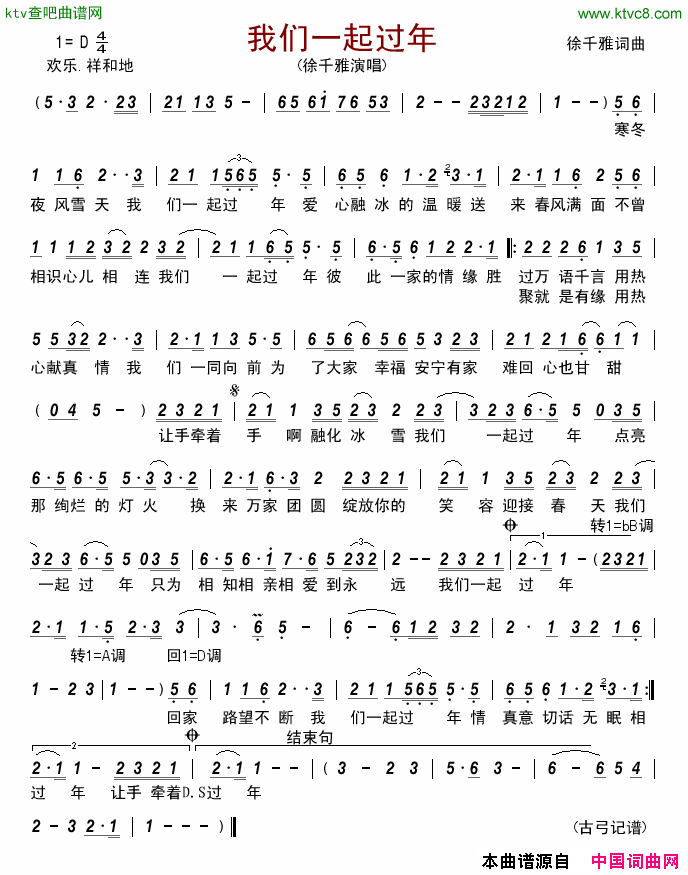 ktv查吧曲谱网
www.ktvc8.com
我们一起过年
1=D 4/4
徐千雅词曲
欢乐.祥和地
(徐千雅演唱)
(5·3 2··23 | 21 13 5- | 65 6i 76 53 | 2--23212 | 1---)56 |
寒冬
1 16 2··3 | 21 1565 5·5 | 65 6 1·2 3·1 | 2·1 16 2 56 |
夜风雪天我 们一起过 年爱 心融冰的温暖送 来春风满面不曾
11 12 32 2 32 | 21 1 65 5·5 | 6·5 6 12 2·1 |: 2 2 26 1 35 |
相识心儿相连我们 一起过年彼 此一家的情缘胜 过万语千言用热
聚就是有缘用热
5 532 2··3 | 2·1 13 5·5 | 656 656 5 323 | 21 216 61 5 |
心献真情我 们一同向前为 了大家幸福安宁有家 难回心也甘甜
(045 5-) 2321 | 21 1 35 23 | 2 2 23 | 323 6·5 5 035 |
让手牵着 手啊融化冰 雪我们 一起过年点亮
6·5 65 5·3 3·2 | 2·1 6·3 2 2321 | 21 1 35 23 | 2 2 23 |
那绚烂的灯火换 来万家团圆绽放你的 笑容迎接春 天我们
转1=bB调
1
323 6·5 5 035 | 6·5 6·i 7·6 5 232 | 2--2321 | 2·1 1-(2321 |
一起过年只为 相知相亲相爱到永 远 我们一起 过年
2·1 1·5 2·3 3 | 3·6 5- | 6-6 12 32 | 2·1 32 13 2 |
转1=A调 回1=D调
1-23 | 1--)56 | 1 16 2··3 | 21 1565 5·5 | 65 6 1·2 3·1 :|
回家 路望不断我 们一起过 年情 真意切话无眠相
2
结束句
2·1 1- 2321 | 2·1 1- | (3-23 | 5·63- | 6-654 |
过年 让手牵着D.S过年
2-32·1 | 1---) ‖
(古弓记谱)
本曲谱源自 中国词曲网